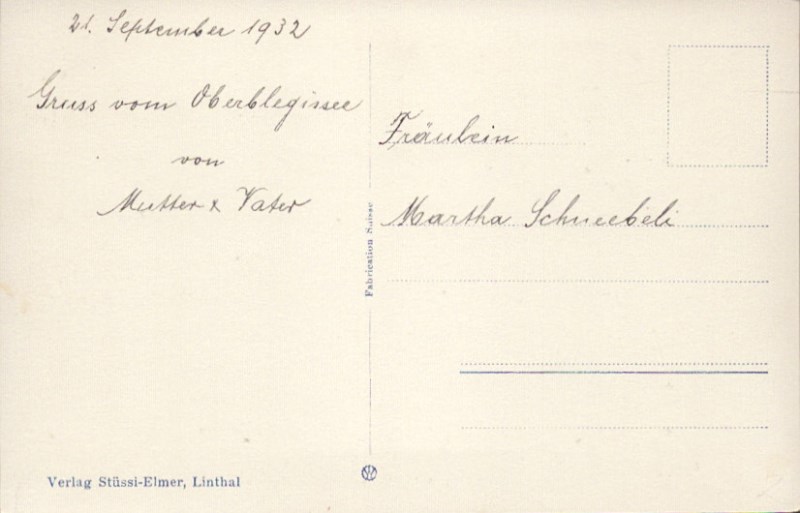 21. September 1932
Gruss vom Oberblegisee
von
Mutter & Vater
Fräulein
Martha Schneebeli
Fabrication Suisse
Verlag Stüssi-Elmer, Linthal